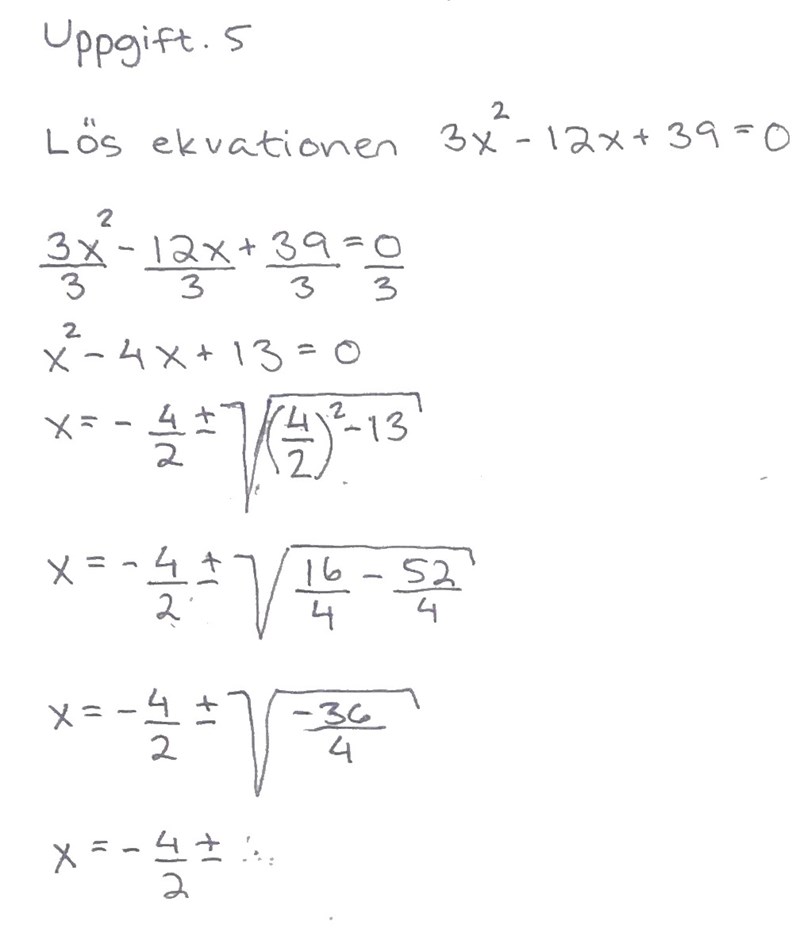 Uppgift. 5
Lös ekvationen 3x² - 12x + 39 = 0
3x²/3 - 12x/3 + 39/3 = 0/3
x² - 4x + 13 = 0
x = - 4/2 ± √((4/2)² - 13)
x = - 4/2 ± √(16/4 - 52/4)
x = - 4/2 ± √(-36/4)
x = - 4/2 ±